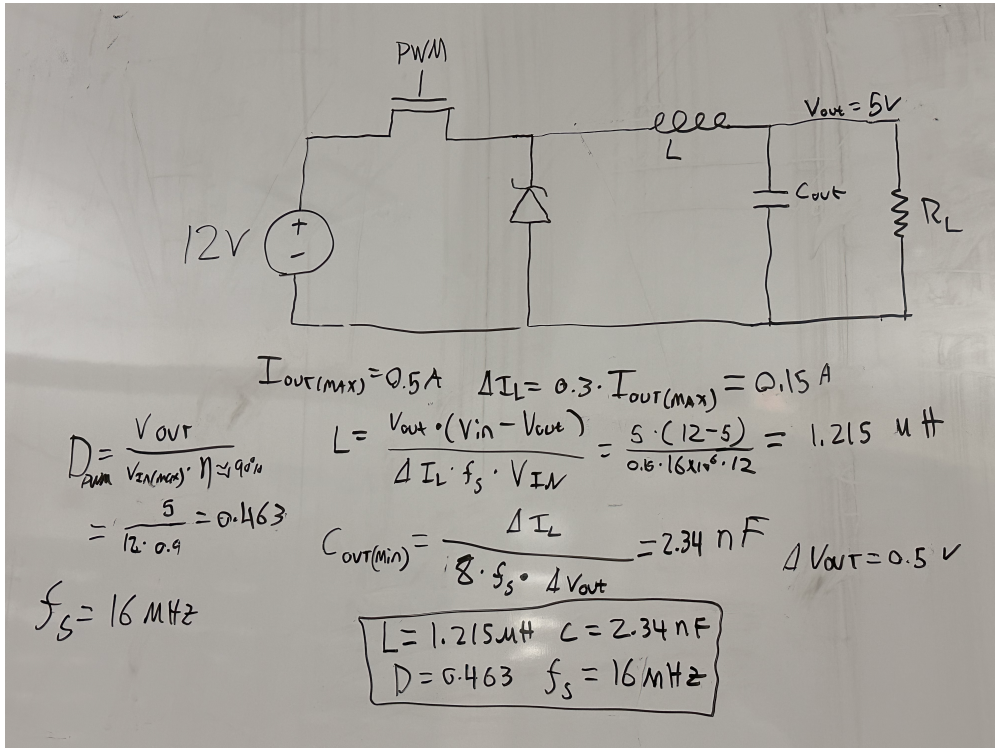 PWM
Vout = 5V
L
Cout
RL
12V
+
-
IOUT(MAX) = 0.5A ΔIL = 0.3 · IOUT(MAX) = 0.15 A
DPWM = VOUT / (VIN(MAX) · η ≈ 90%)
= 5 / (12 · 0.9) = 0.463
L = Vout · (Vin - Vout) / (ΔIL · fs · VIN) = 5 · (12-5) / (0.15 · 16x10⁶ · 12) = 1.215 μH
COUT(Min) = ΔIL / (8 · fs · ΔVout) = 2.34 nF
ΔVOUT = 0.5 V
fs = 16 MHz
L = 1.215μH C = 2.34 nF
D = 0.463 fs = 16 MHz